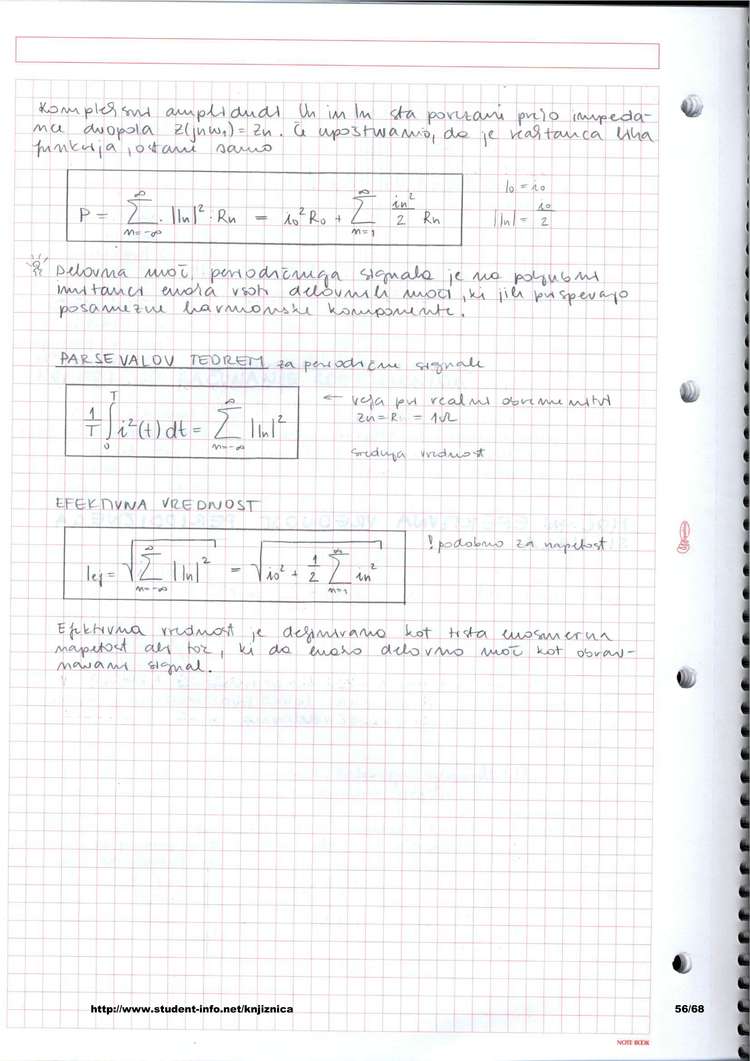 Kompleksni amplitudi Un in In sta povezani prejo impeda-
nce dvopola Z(jnω₁) = Zn. Če upoštevamo, da je reaktanca liha
funkcija, ostane samo
P = ∑_{n=-∞}^{∞} |In|² · Rn = i₀² R₀ + ∑_{n=1}^{∞} in²/2 Rn
I₀ = i₀
|In| = i₀/2
Delovna moč periodičnega signala je na poljubni
imitanci enaka vsoti delovnih moči, ki jih prispevajo
posamezne harmonske komponente.
PARSEVALOV TEOREM za periodične signale
1/T ∫₀ᵀ i²(t) dt = ∑_{n=-∞}^{∞} |In|²
← velja pri realni obremenitvi
Zn = R = 1Ω
srednja vrednost
EFEKTIVNA VREDNOST
Ief = √(∑_{n=-∞}^{∞} |In|²) = √(i₀² + 1/2 ∑_{n=1}^{∞} in²)
! podobno za napetost
Efektivna vrednost je definirana kot tista enosmerna
napetost ali tok, ki da enako delovno moč kot obrav-
navani signal.
http://www.student-info.net/knjiznica
56/68
NOTE BOOK